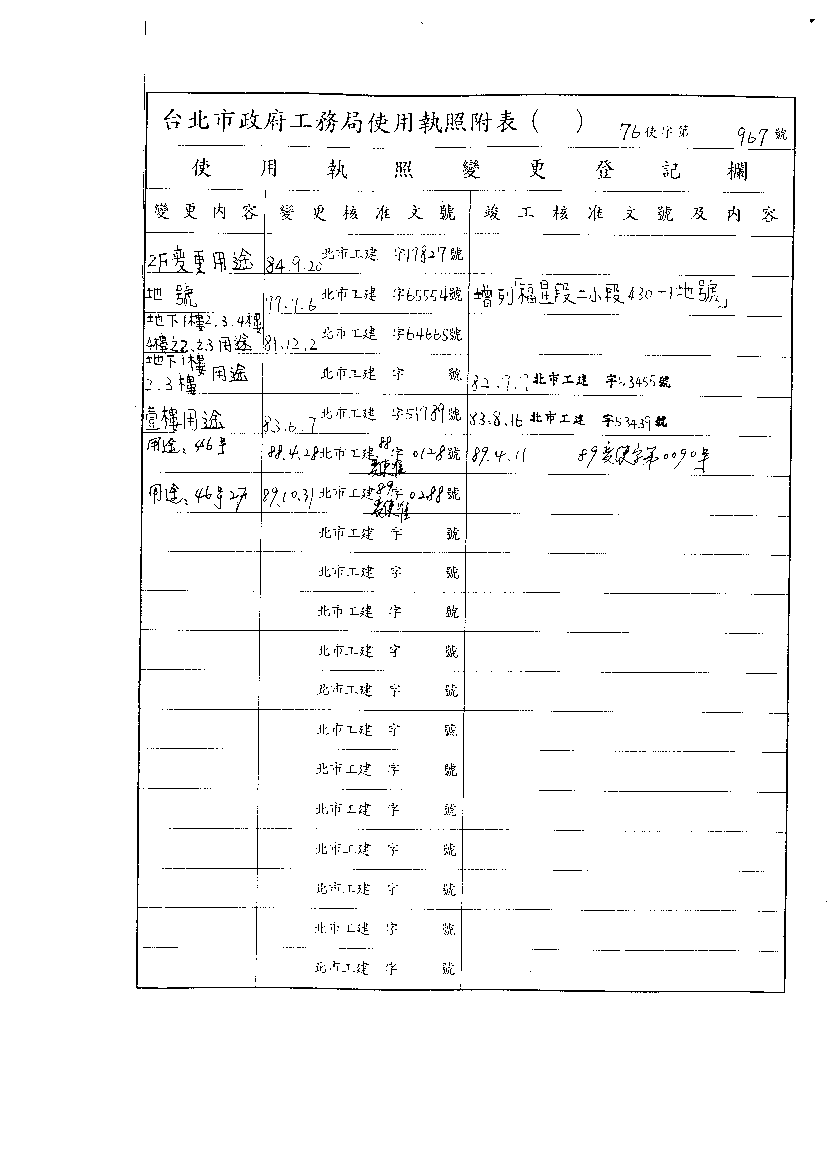 台北市政府工務局使用執照附表（　） 76使字第 967號
使用執照變更登記欄
變更內容 變更核准文號 竣工核准文號及內容
2F變更用途 84.9.20 北市工建 字17827號
地號 77.7.6 北市工建 字65554號 增列「福星段二小段430-3地號」
地下1樓2.3.4樓
4樓之2.之3用途 81.12.2 北市工建 字64668號
地下1樓
2.3樓 用途 北市工建 字 號 82.7.7 北市工建 字53455號
壹樓用途 83.6.7 北市工建 字51789號 83.8.16 北市工建 字53439號
用途:46号 88.4.28 北市工建 88 字 0128號 89.4.11 89變使字第0090号
用途:46号2F 89.10.31 北市工建 89 字 0288號
北市工建 字 號
北市工建 字 號
北市工建 字 號
北市工建 字 號
北市工建 字 號
北市工建 字 號
北市工建 字 號
北市工建 字 號
北市工建 字 號
北市工建 字 號
北市工建 字 號
北市工建 字 號